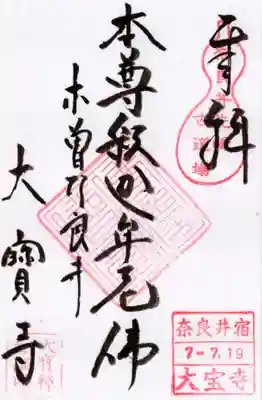 奉拜
古道場
本尊釈迦牟尼佛
木曽奈良井
大寳寺
奈良井宿
7-7.19
大宝寺